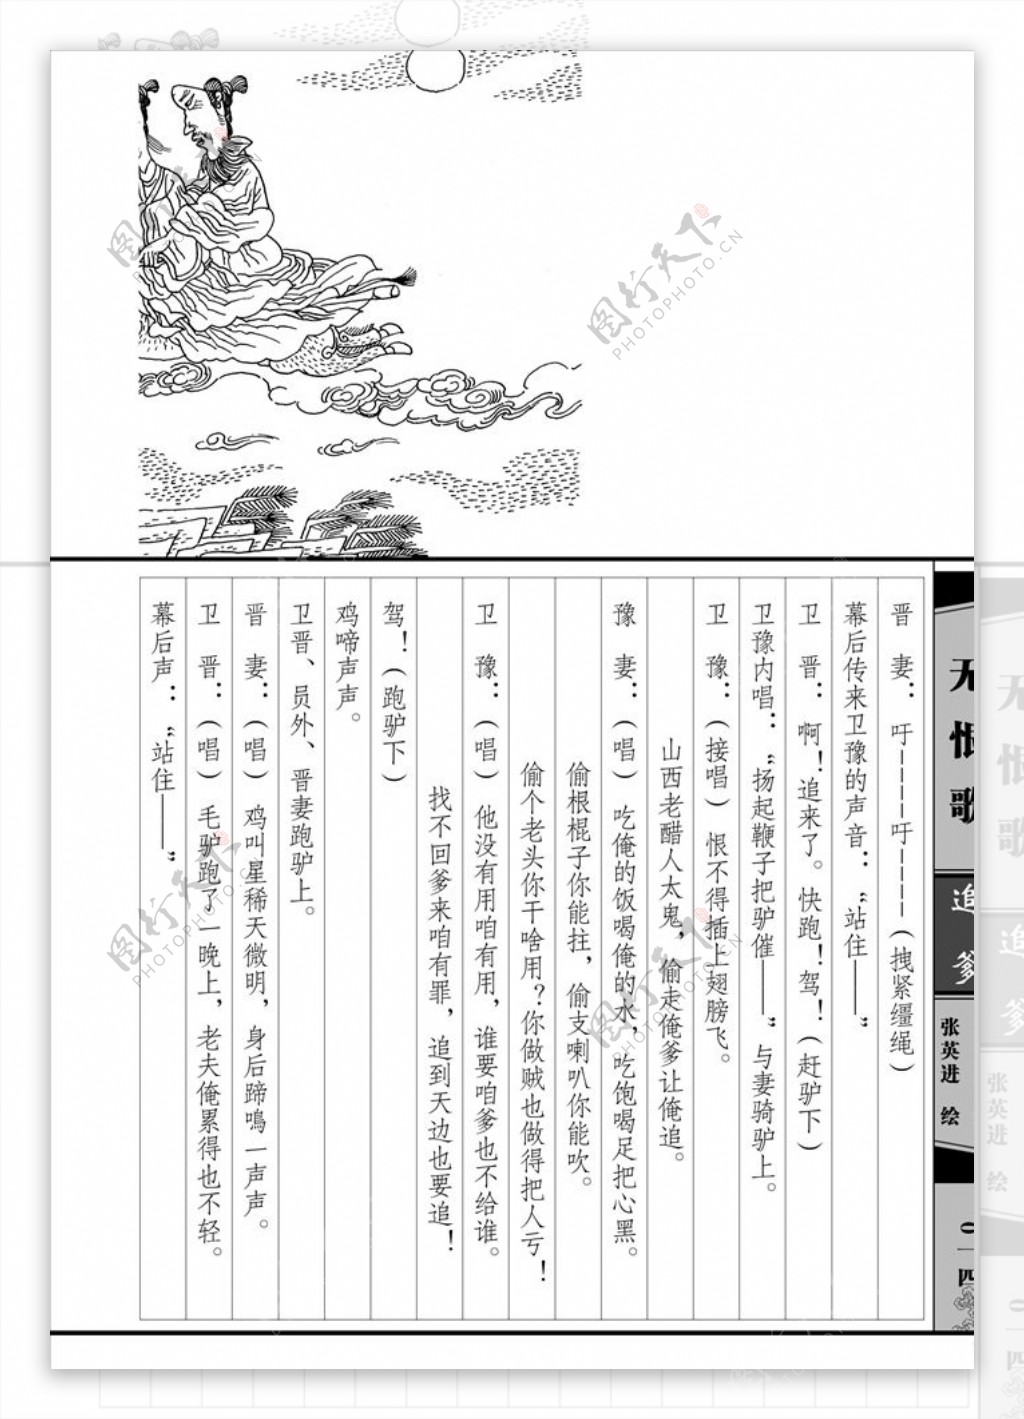 晋　妻：吁－－－－－吁－－－－（拽紧缰绳）
幕后传来卫豫的声音：“站住——”
卫　晋：啊！追来了。快跑！驾！（赶驴下）
卫豫内唱：“扬起鞭子把驴催——”与妻骑驴上。
卫　豫：（接唱）恨不得插上翅膀飞。
山西老醋人太鬼，偷走俺爹让俺追。
豫　妻：（唱）吃俺的饭喝俺的水，吃饱喝足把心黑。
偷根棍子你能拄，偷支喇叭你能吹。
偷个老头你干啥用？你做贼也做得把人亏！
卫　豫：（唱）他没有用咱有用，谁要咱爹也不给谁。
找不回爹来咱有罪，追到天边也要追！
驾！（跑驴下）
鸡啼声声。
卫晋、员外、晋妻跑驴上。
晋　妻：（唱）鸡叫星稀天微明，身后蹄鳴一声声。
卫　晋：（唱）毛驴跑了一晚上，老夫俺累得也不轻。
幕后声：“站住——”
无恨歌
追爹
张英进　绘
0一四
图行天下
PHOTOPHOTO.CN
图行天下
PHOTOPHOTO.CN
图行天下
PHOTOPHOTO.CN
图行天下
PHOTOPHOTO.CN